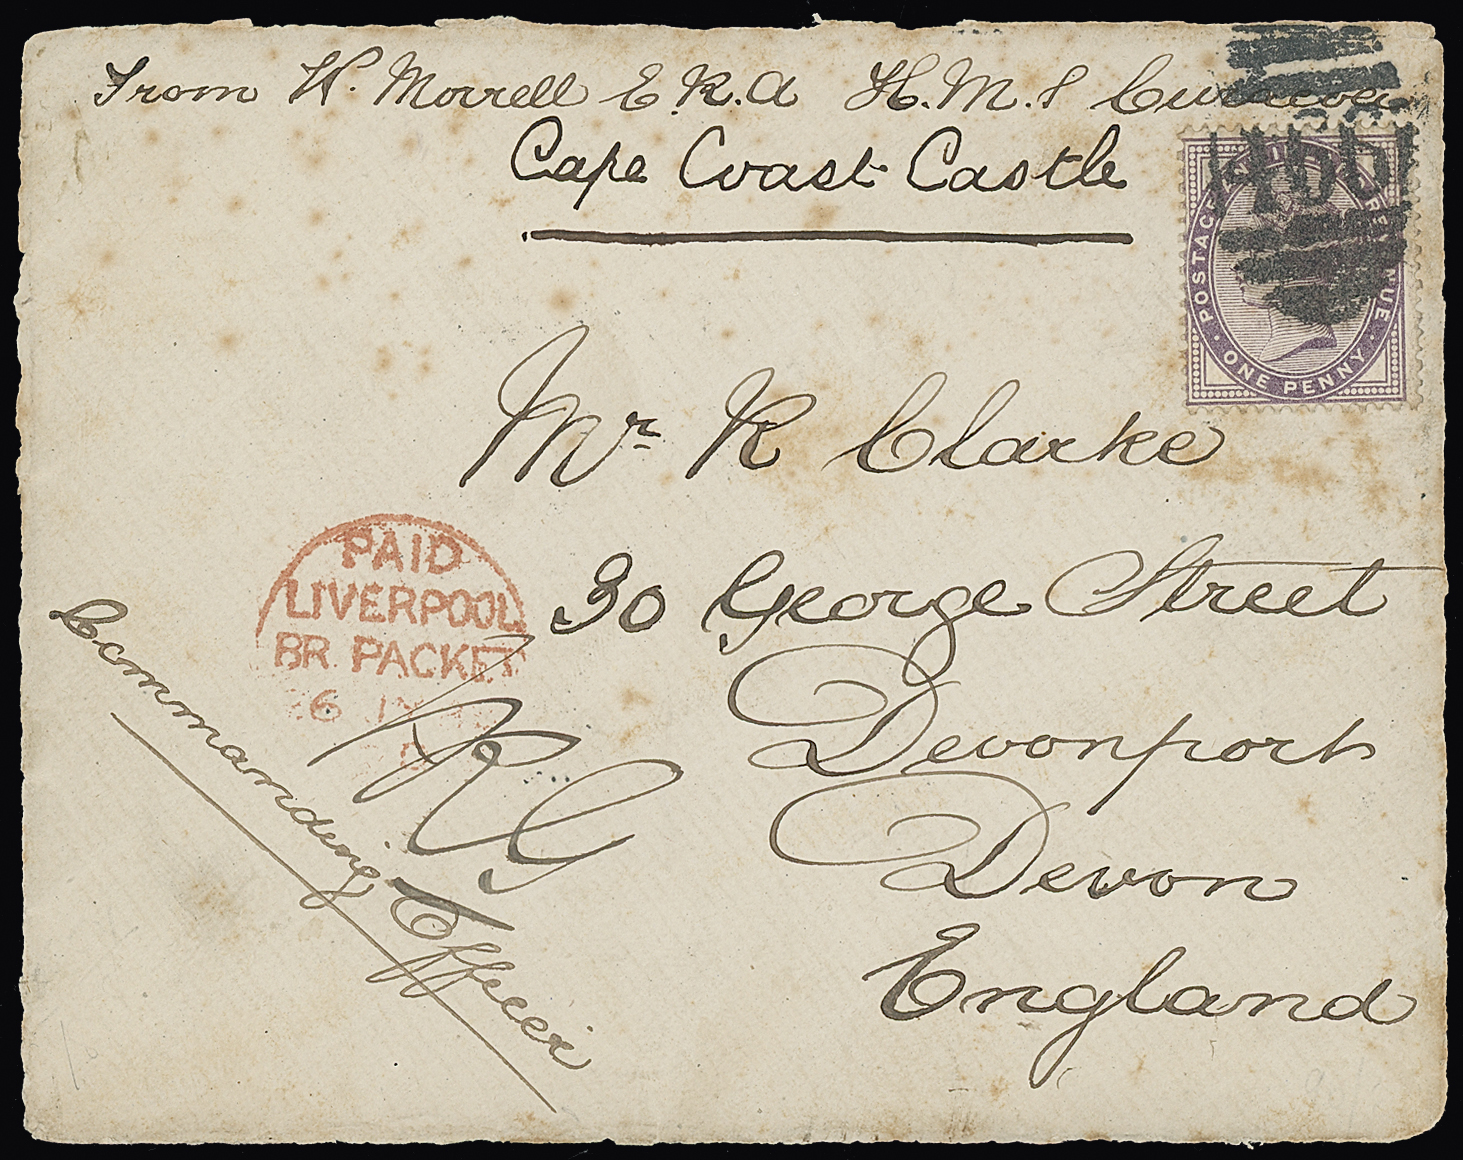 From W. Morrell E.R.A H.M.S
Cape Coast Castle
466
POSTAGE & INLAND REVENUE
ONE PENNY
Mr R Clarke
30 George Street
Devonport
Devon
England
PAID
LIVERPOOL
BR. PACKET
6
Commanding Officer